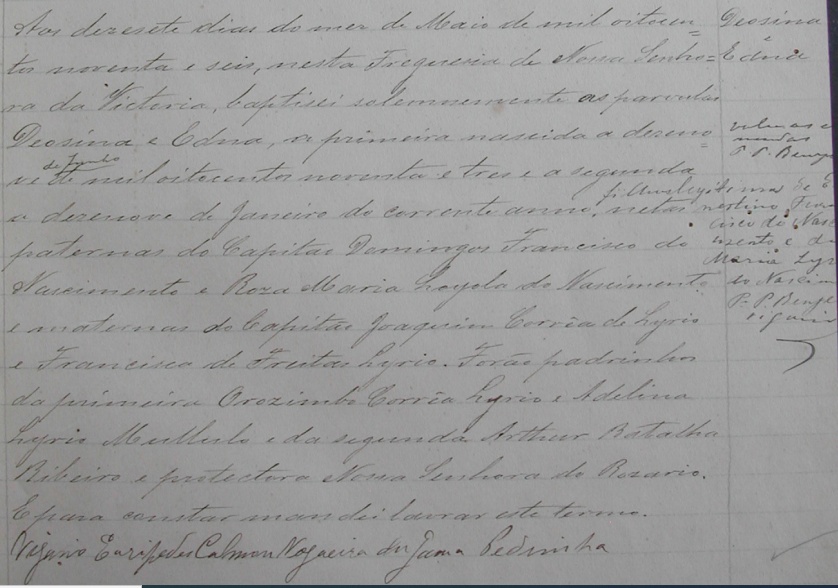 Aos dezesete dias do mez de Maio de mil oitocen=
tos noventa e seis, nesta Freguesia de Nossa Senho=
ra da Victoria, baptisei solemnemente as parvulas
Deosina e Edna, a primeira nascida a dezeno=
ve de Junho de mil oitocentos noventa e tres e a segunda
a dezenove de Janeiro do corrente anno, netas
paternas do Capitão Domingos Francisco do
Nascimento e Roza Maria Loyola do Nascimento
e maternas do Capitão Joaquim Corrêa de Lyrio
e Francisca de Freitas Lyrio. Forão padrinhos
da primeira Orozimbo Corrêa Lyrio e Adelina
Lyrio e da segunda Arthur Batalha
Ribeiro e protectora Nossa Senhora do Rozario.
E para constar mandei lavrar este termo.
Vigario Euripedes Calmon Nogueira da Gama Pedrinha
Deosina
Edna
P. P.
filhas legitimas de
Fran
cisco do Nas
mento e
Maria Lyr
do Nascim
P. P.